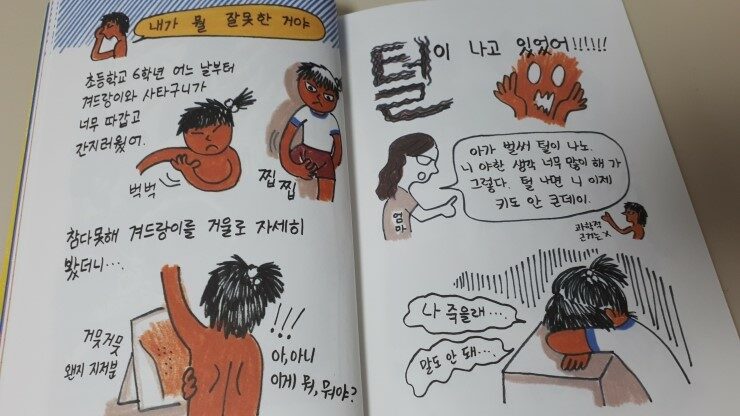 내가 뭘 잘못한 거야
초등학교 6학년 어느 날부터
겨드랑이와 사타구니가
너무 따갑고
간지러웠어.
벅벅
찝찝
참다못해 겨드랑이를 거울로 자세히
봤더니….
거뭇거뭇
왠지 지저분
!!!
아, 아니
이게 뭐, 뭐야?
털이 나고 있었어!!!!!!
아가 벌써 털이 나노.
니 야한 생각 너무 많이 해 가
그렇다. 털 나면 니 이제
키도 안 큰데이.
엄마
과학적
근거는 X
나 죽을래….
말도 안 돼…